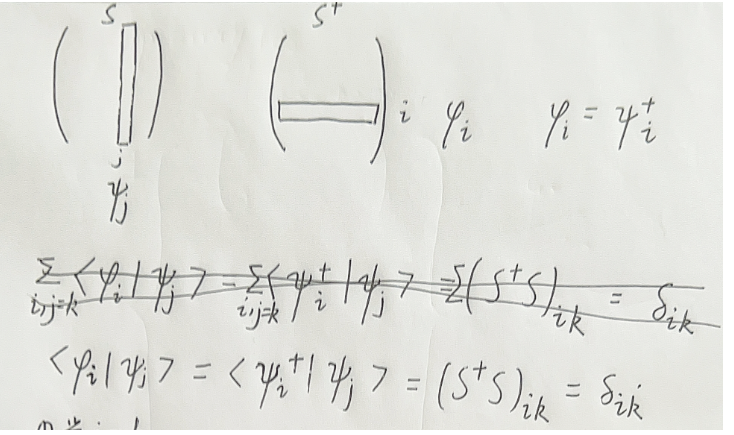 S S†
( ) ( ) i φ_i φ_i = ψ_i^†
j
ψ_j
Σ_{i,j=k} <φ_i|ψ_j> = Σ_{i,j=k} <ψ_i^†|ψ_j> = Σ(S†S)_{ik} = δ_{ik}
<φ_i|ψ_j> = <ψ_i^†|ψ_j> = (S†S)_{ik} = δ_{ik}